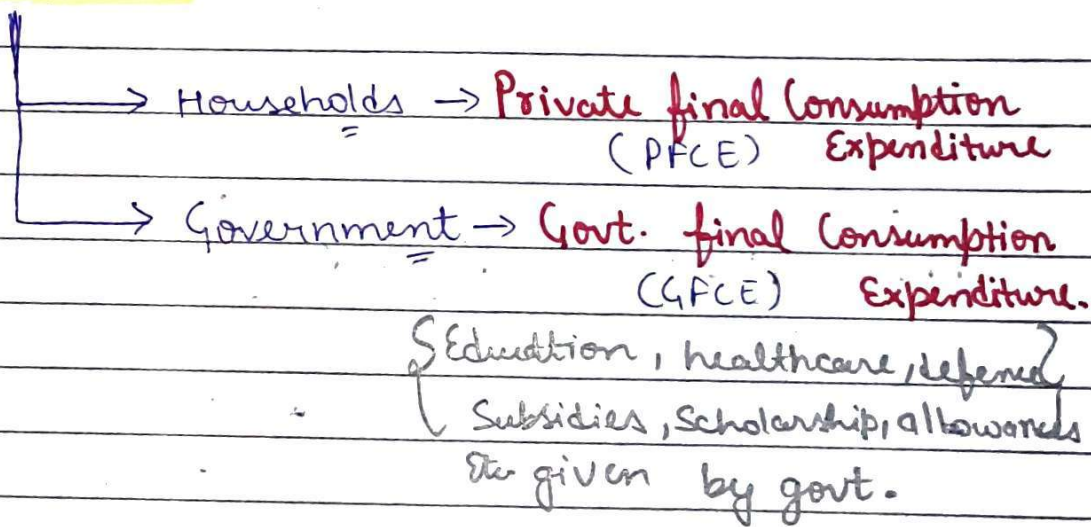 → Households → Private final Consumption
(PFCE) Expenditure
→ Government → Govt. final Consumption
(GFCE) Expenditure.
{Education, healthcare, defence,
Subsidies, Scholarship, allowances}
etc given by govt.